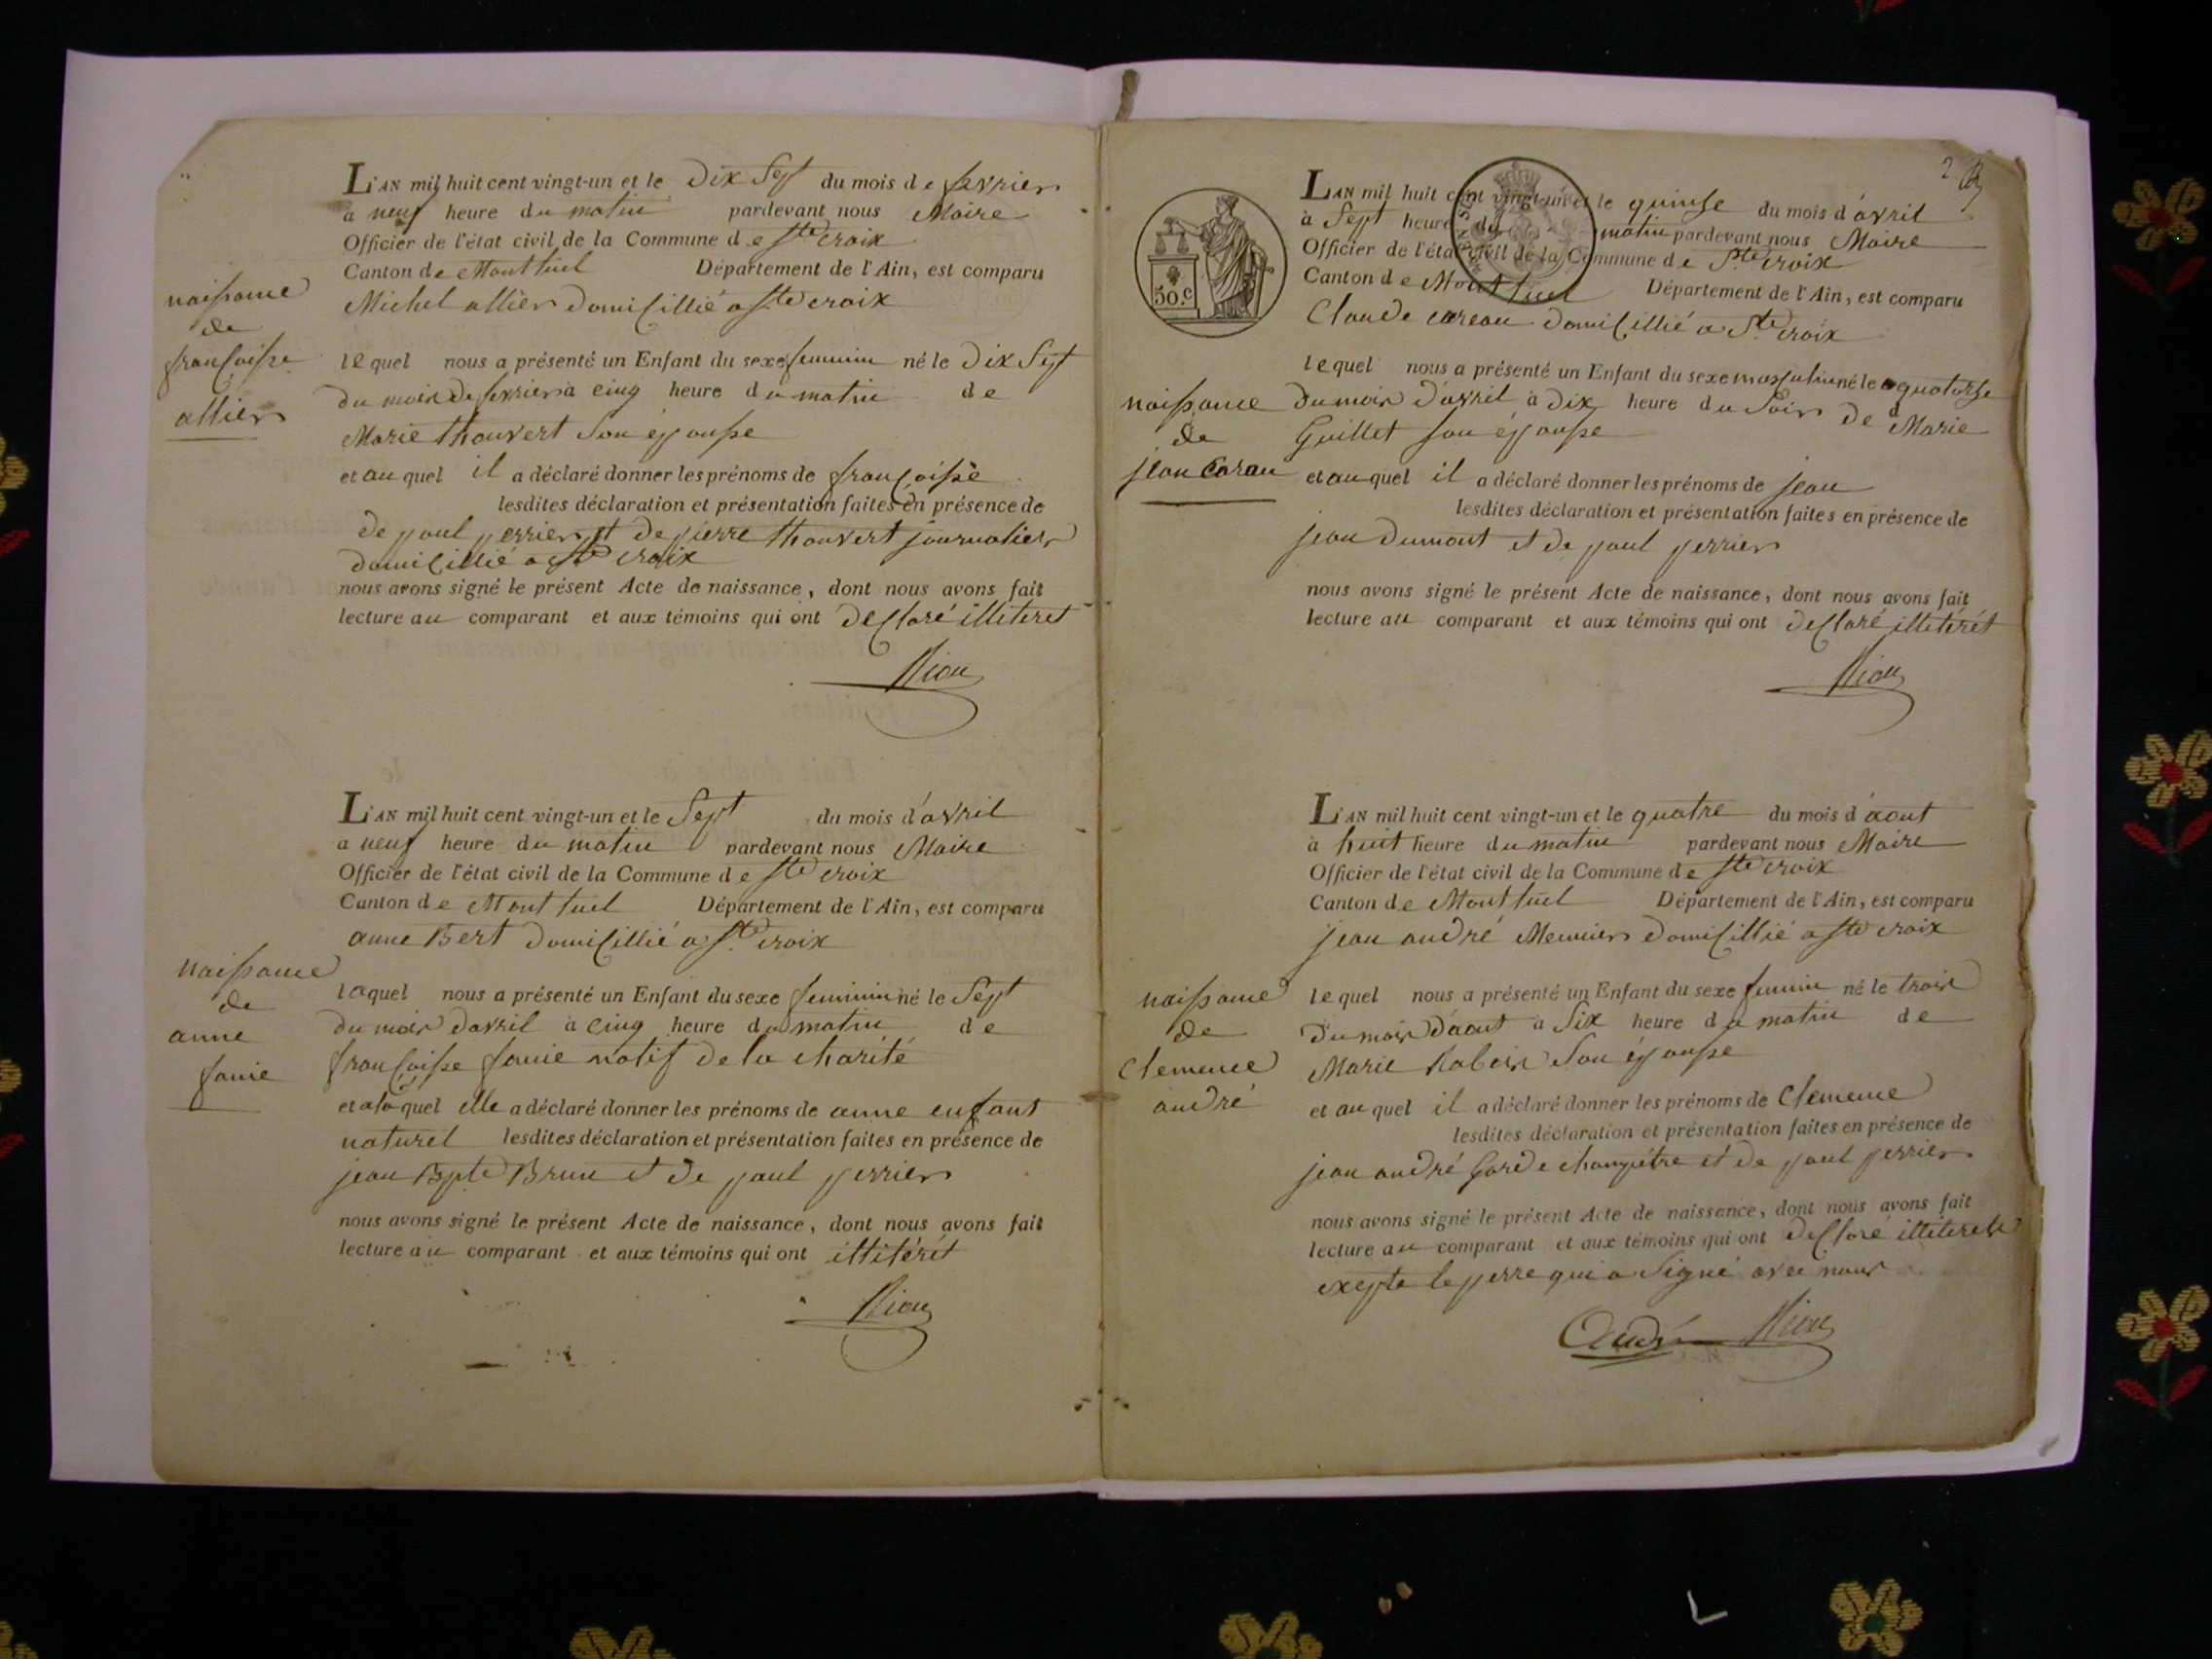 naissance
de
francoisse
allier
L'AN mil huit cent vingt-un et le Dix Sept du mois de fevrier
a neuf heure du matin pardevant nous Maire
Officier de l'état civil de la Commune de Ste croix
Canton de Montluel Département de l'Ain, est comparu
Michel allier domicillié a Ste croix
lequel nous a présenté un Enfant du sexe feminin né le Dix Sept
du mois de fevrier à cinq heure du matin de
Marie thouvert Son épousse
et au quel il a déclaré donner les prénoms de francoisse
lesdites déclaration et présentation faites en présence de
de paul perrier et de pierre thouvert journalier
domicillié a Ste croix
nous avons signé le présent Acte de naissance, dont nous avons fait
lecture au comparant et aux témoins qui ont declaré illiteret
naissance
de
anne
L'AN mil huit cent vingt-un et le Sept du mois d'avril
a neuf heure du matin pardevant nous Maire
Officier de l'état civil de la Commune de Ste croix
Canton de Montluel Département de l'Ain, est comparu
anne Bert domicillié a Ste croix
laquel nous a présenté un Enfant du sexe feminin né le Sept
du mois d'avril à cinq heure du matin de
francoisse natif de la charité
et a la quel elle a déclaré donner les prénoms de anne enfant
naturel lesdites déclaration et présentation faites en présence de
jean Bpte Brun et de paul perrier
nous avons signé le présent Acte de naissance, dont nous avons fait
lecture au comparant et aux témoins qui ont illitérét
2
50.c
naissance
de
jean Carau
L'AN mil huit cent vingt-un et le quinse du mois d'avril
à Sept heure du matin pardevant nous Maire
Officier de l'état civil de la Commune de Ste croix
Canton de Montluel Département de l'Ain, est comparu
Claude careau domicillié a Ste croix
lequel nous a présenté un Enfant du sexe masculin né le quatorse
du mois d'avril à dix heure du Soir de Marie
Guillet son épousse
et au quel il a déclaré donner les prénoms de jean
lesdites déclaration et présentation faites en présence de
jean dumont et de paul perrier
nous avons signé le présent Acte de naissance, dont nous avons fait
lecture au comparant et aux témoins qui ont declaré illitérét
naissance
de
Clemence
andré
L'AN mil huit cent vingt-un et le quatre du mois d'aout
à huit heure du matin pardevant nous Maire
Officier de l'état civil de la Commune de Ste croix
Canton de Montluel Département de l'Ain, est comparu
jean andré Meunier domicillié a Ste croix
lequel nous a présenté un Enfant du sexe feminin né le trois
du mois d'aout à Six heure du matin de
Marie Son épousse
et au quel il a déclaré donner les prénoms de Clemence
lesdites déclaration et présentation faites en présence de
jean andré Garde champétre et de paul perrier
nous avons signé le présent Acte de naissance, dont nous avons fait
lecture au comparant et aux témoins qui ont declaré
exepte le perre qui a Signé avec nous
André